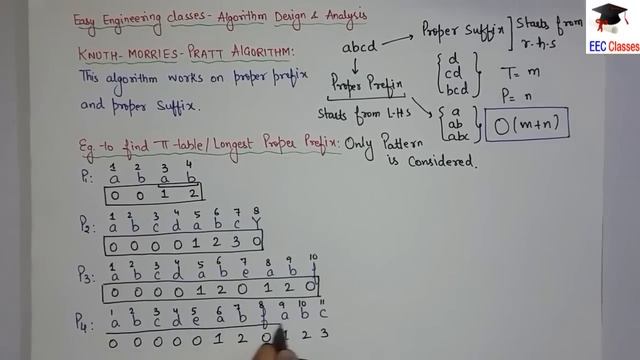 Easy Engineering classes- Algorithm Design & Analysis
EEC Classes
KNUTH-MORRIES-PRATT ALGORITHM:
This algorithm works on proper prefix
and proper Suffix.
abcd
Proper Suffix
Starts from
r.h.s
d
cd
bcd
T= m
P= n
Proper Prefix
Starts from L.H.S
a
ab
abc
O(m+n)
Eg.-to find π-table/Longest Proper Prefix: Only Pattern
is Considered.
1 2 3 4
P1: a b a b
0 0 1 2
1 2 3 4 5 6 7 8
P2: a b c d a b c Y
0 0 0 0 1 2 3 0
1 2 3 4 5 6 7 8 9 10
P3: a b c d a b e a b f
0 0 0 0 1 2 0 1 2 0
1 2 3 4 5 6 7 8 9 10 11
P4: a b c d e a b f a b c
0 0 0 0 0 1 2 0 1 2 3